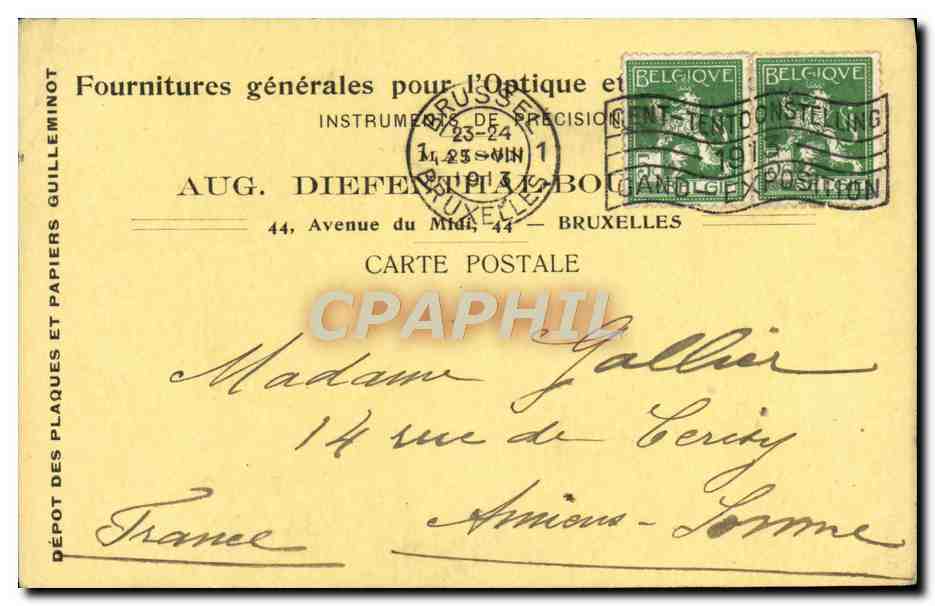 DÉPOT DES PLAQUES ET PAPIERS GUILLEMINOT
Fournitures générales pour l'Optique et
INSTRUMENTS DE PRÉCISION
AUG. DIEFENTHAL-BOU
44, Avenue du Midi, 44 — BRUXELLES
CARTE POSTALE
BRUSSEL
23-24
1 1
1913
BRUXELLES
BELGIQVE BELGIQVE
GENT-TENTOONSTELLING
GAND-EXPOSITION
CPAPHIL
Madame Gallier
14 rue de Cerisy
Amiens - Somme
France